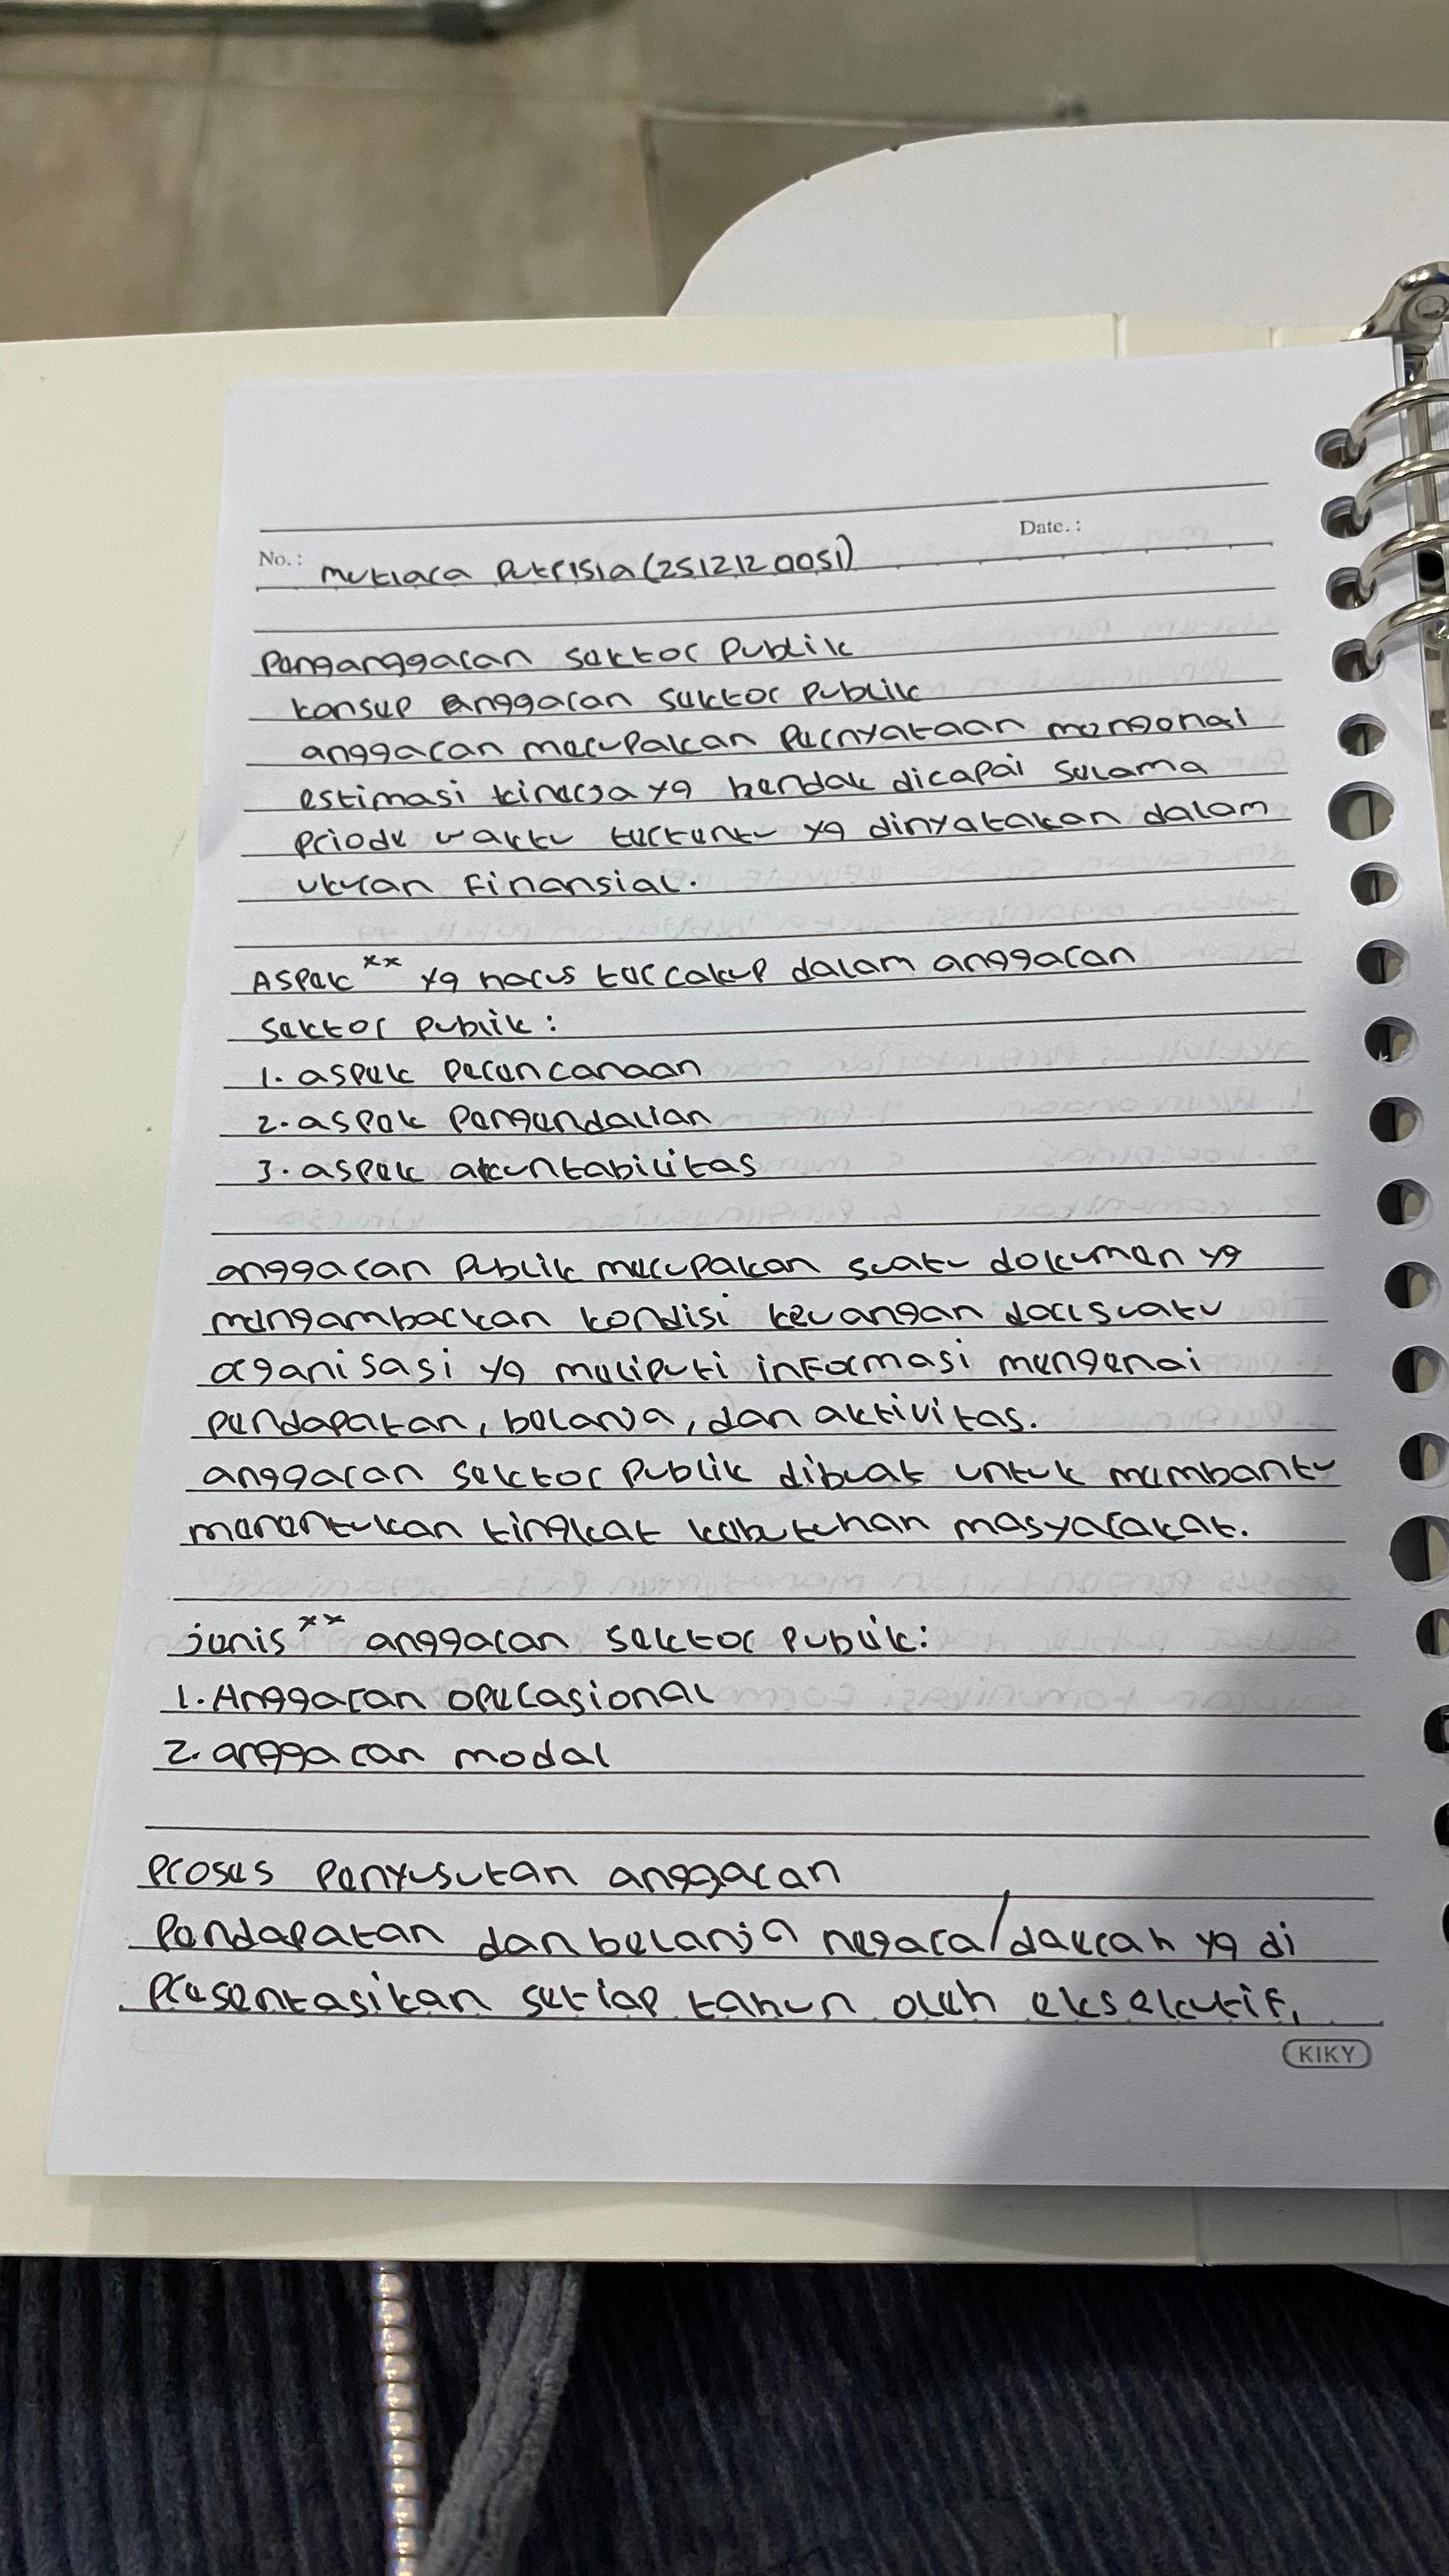 No.: Mutiara Putrisia (2512120051) Date.:
Penganggaran sektor publik
konsep anggaran sektor publik
anggaran merupakan pernyataan mengenai
estimasi kinerja yg hendak dicapai selama
priode waktu tertentu yg dinyatakan dalam
ukuran finansial.
Aspek ×× yg harus tercakup dalam anggaran
sektor publik :
1. aspek perencanaan
2. aspek pengendalian
3. aspek akuntabilitas
anggaran publik merupakan suatu dokumen yg
mengambarkan kondisi keuangan dari suatu
organisasi yg meliputi informasi mengenai
pendapatan, belanja, dan aktivitas.
anggaran sektor publik dibuat untuk membantu
menentukan tingkat kebutuhan masyarakat.
jenis ×× anggaran sektor publik:
1. Anggaran operasional
2. anggaran modal
proses penyusutan anggaran
Pendapatan dan belanja negara/daerah yg di
presentasikan setiap tahun oleh eksekutif,
KIKY